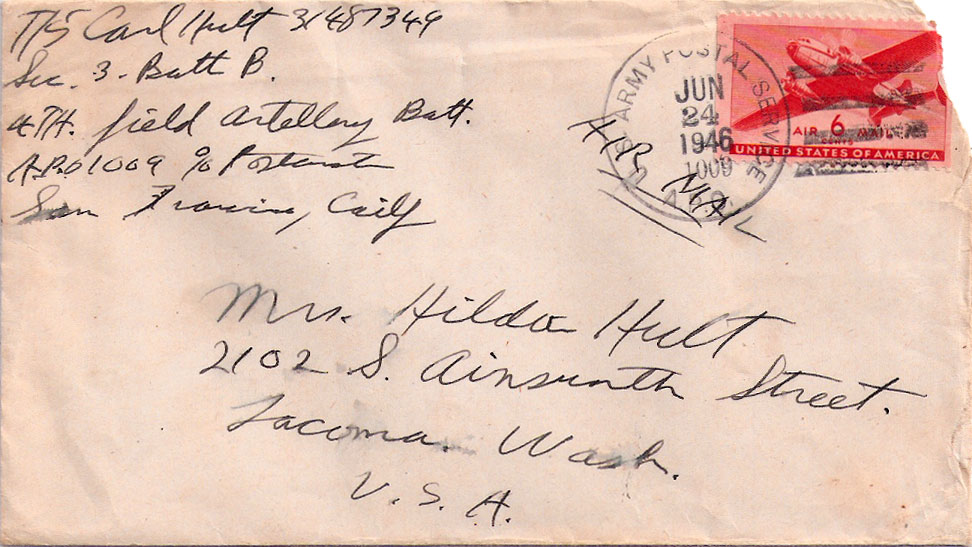 T/5 Carl Hult 31487349
Sec. 3 - Batt B.
4TH. field Artillery Batt.
A.P.O 1009 % Postmast
San Francisco, Calif
U.S. ARMY POSTAL SERVICE
JUN
24
1946
1009
A.P.O.
AIR MAIL
AIR 6 MAIL
CENTS
UNITED STATES OF AMERICA
Mrs. Hilda Hult
2102 S. Ainsworth Street.
Tacoma. Wash.
U.S.A.